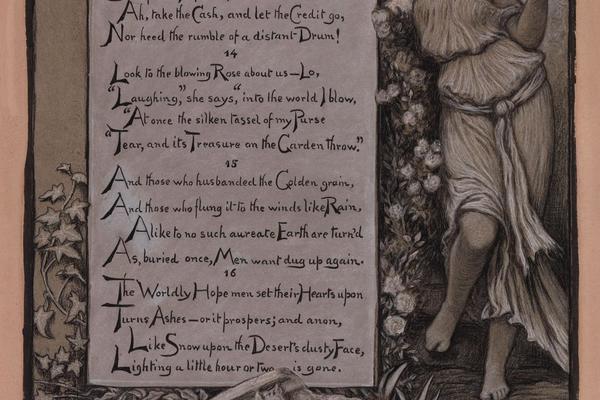 Ah, take the Cash, and let the Credit go,
Nor heed the rumble of a distant Drum!
14
Look to the blowing Rose about us—Lo,
"Laughing," she says, "into the world I blow,
"At once the silken tassel of my Purse
"Tear, and its Treasure on the Garden throw."
15
And those who husbanded the Golden grain,
And those who flung it to the winds like Rain,
Alike to no such aureate Earth are turn'd
As, buried once, Men want dug up again.
16
The Worldly Hope men set their Hearts upon
Turns Ashes—or it prospers; and anon,
Like Snow upon the Desert's dusty Face,
Lighting a little hour or two is gone.